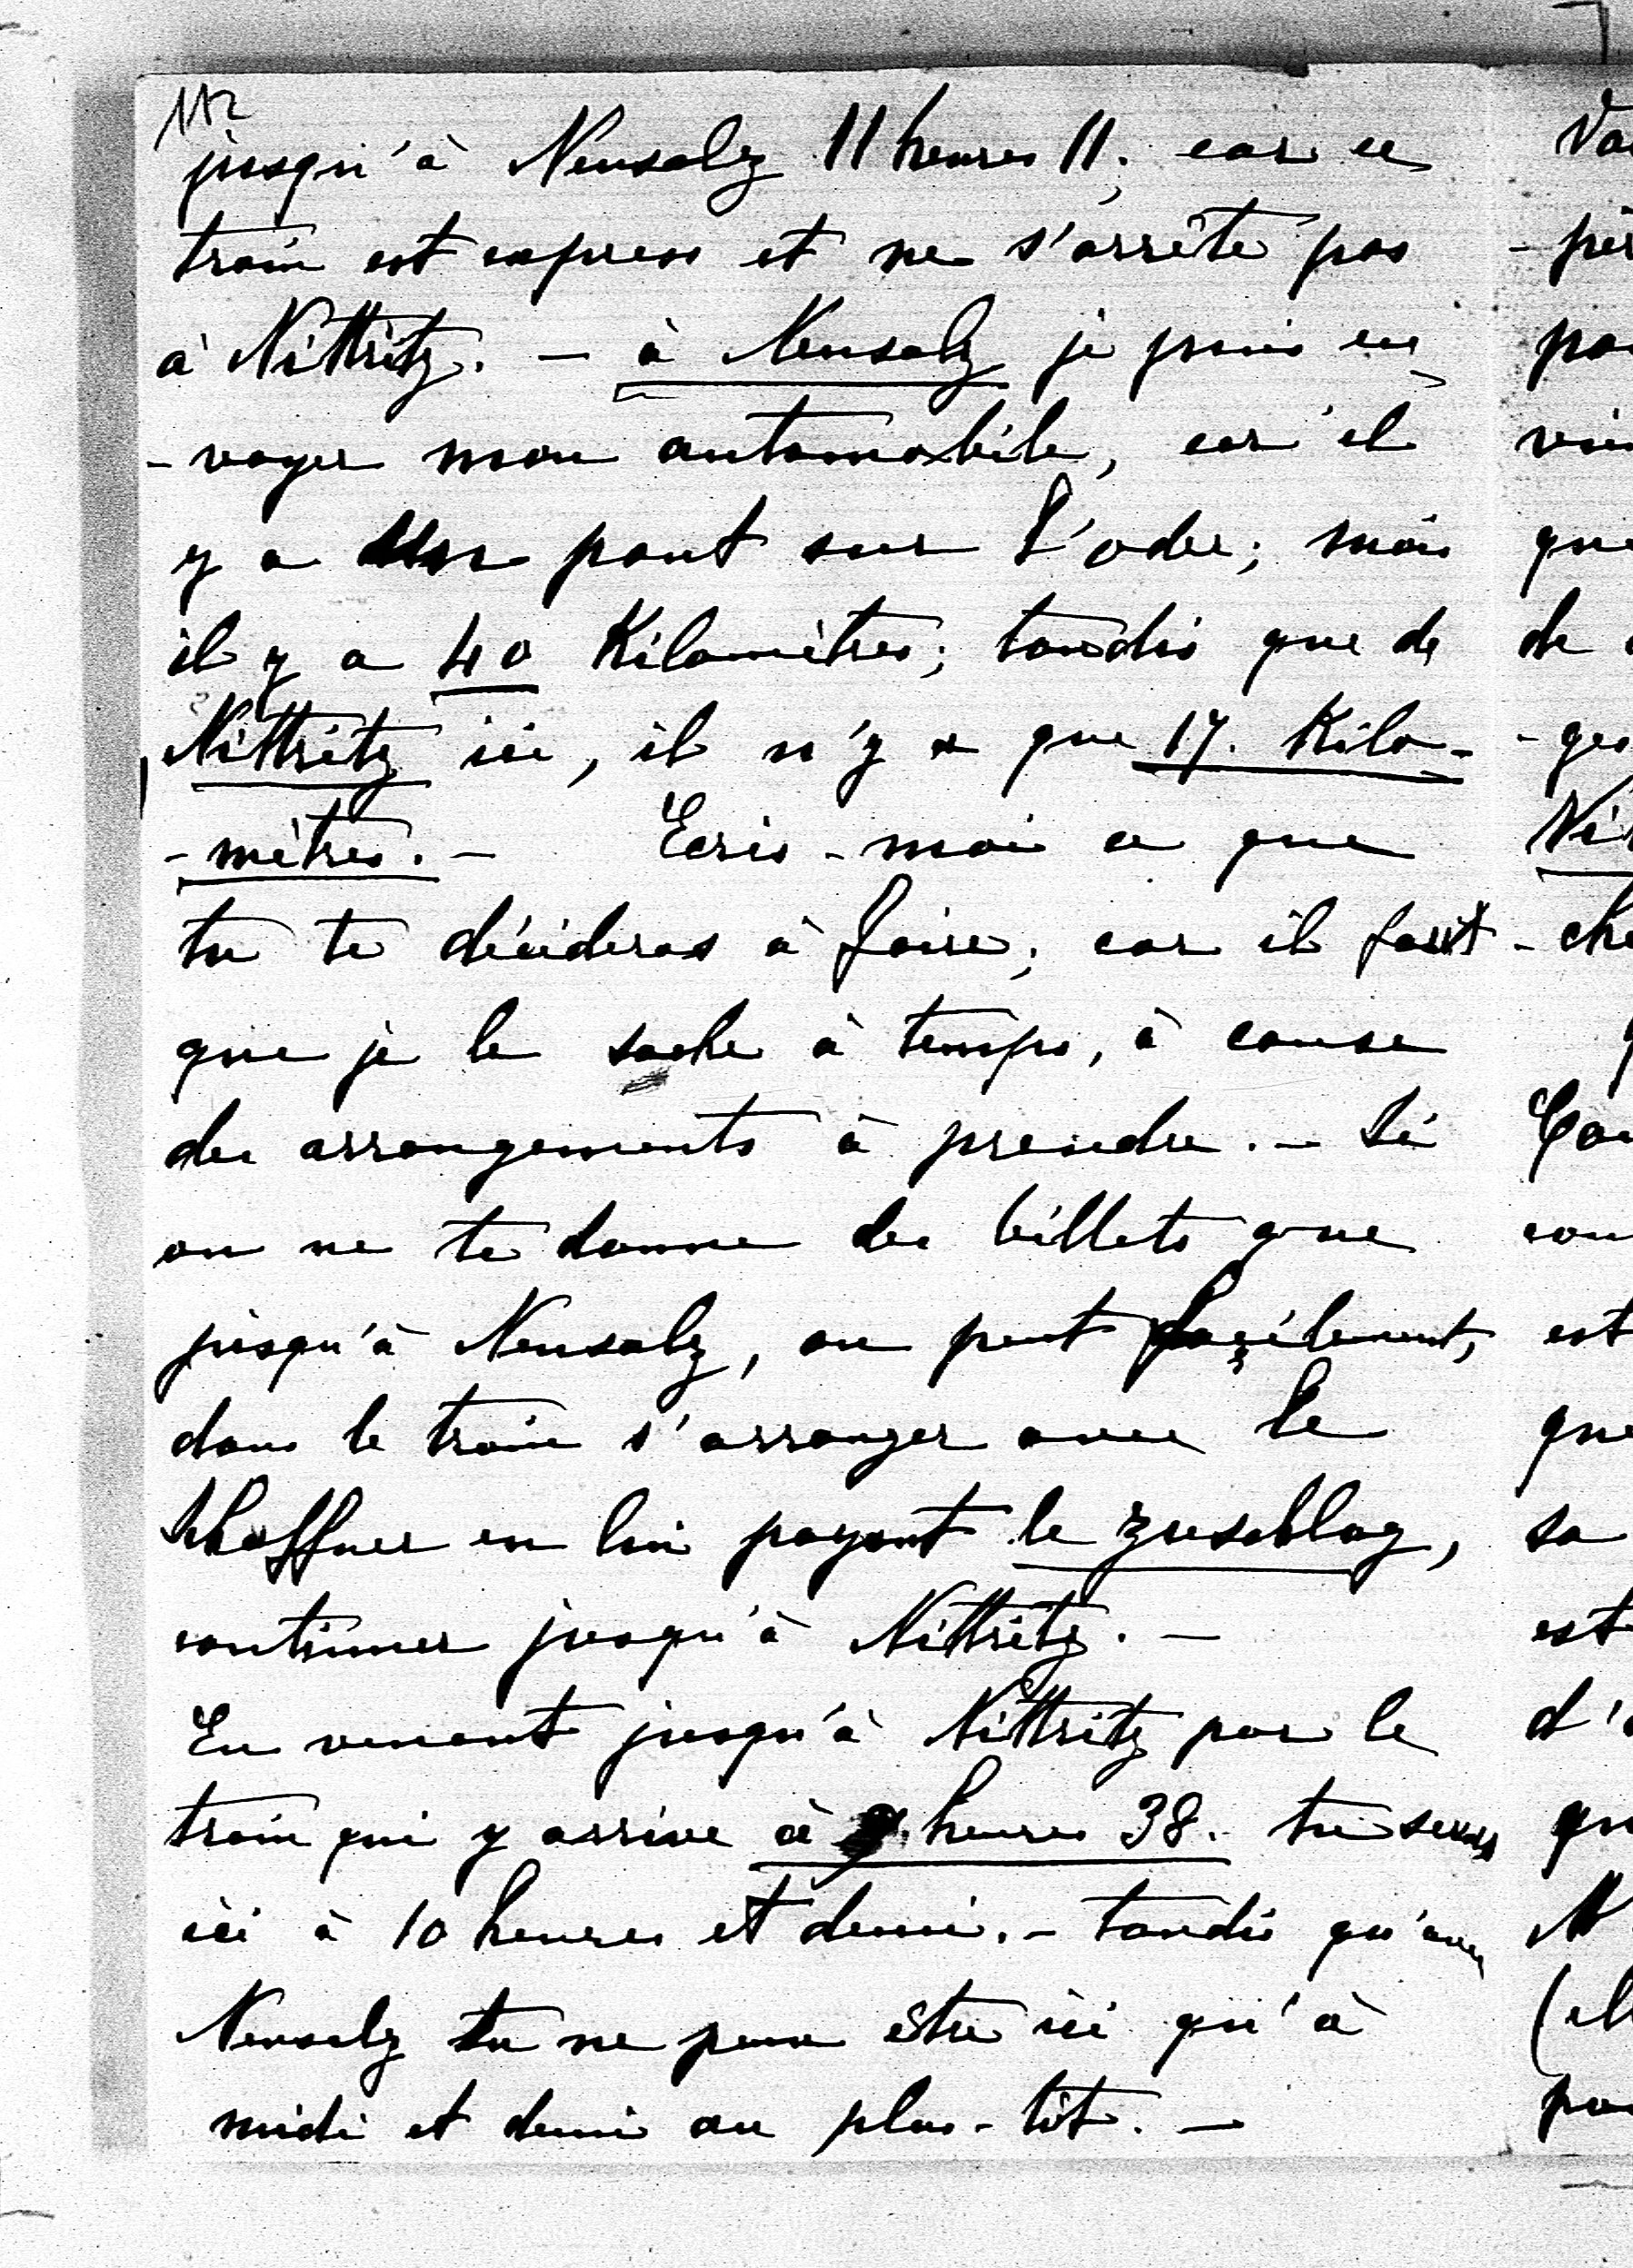 112
jusqu'à Neusalz 11 heures 11; car ce
train est express et ne s'arrête pas
à Nittritz. — à Neusalz je puis en
-voyer mon automobile, car il
y a un pont sur l'oder; mais
il y a 40 Kilomètres; tandis que de
Nittritz ici, il n'y a que 17. Kilo-
-mètres. — Ecris-moi ce que
tu te décideras à faire; car il faut
que je le sache à temps, à cause
des arrangements à prendre. — Si
on ne te donne des billets que
jusqu'à Neusalz, on peut facilement,
dans le train s'arranger avec le
Schaffner en lui payant le zuschlag,
continuer jusqu'à Nittritz. —
En venant jusqu'à Nittritz par le
train qui y arrive à 9 heures 38. tu seras
ici à 10 heures et demi. — tandis qu'avec
Neusalz tu ne peux être ici qu'à
midi et demi au plus-tôt. —